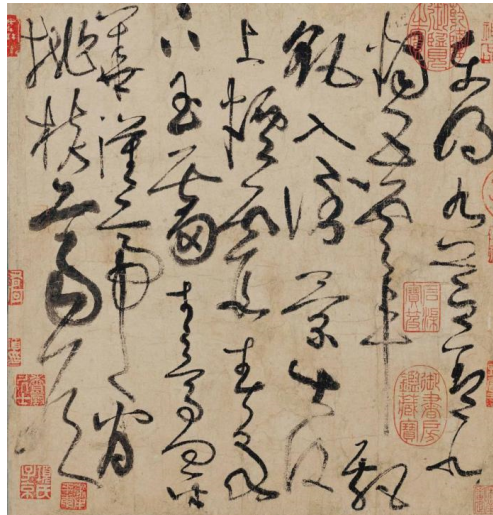 東明九芝蓋北
燭五雲車飄
飖入倒景出没
上煙霞春泉
下玉霤青鳥向金
華漢帝看
桃核齊侯問
石渠寶笈
御書房鑑藏寶
項氏子京